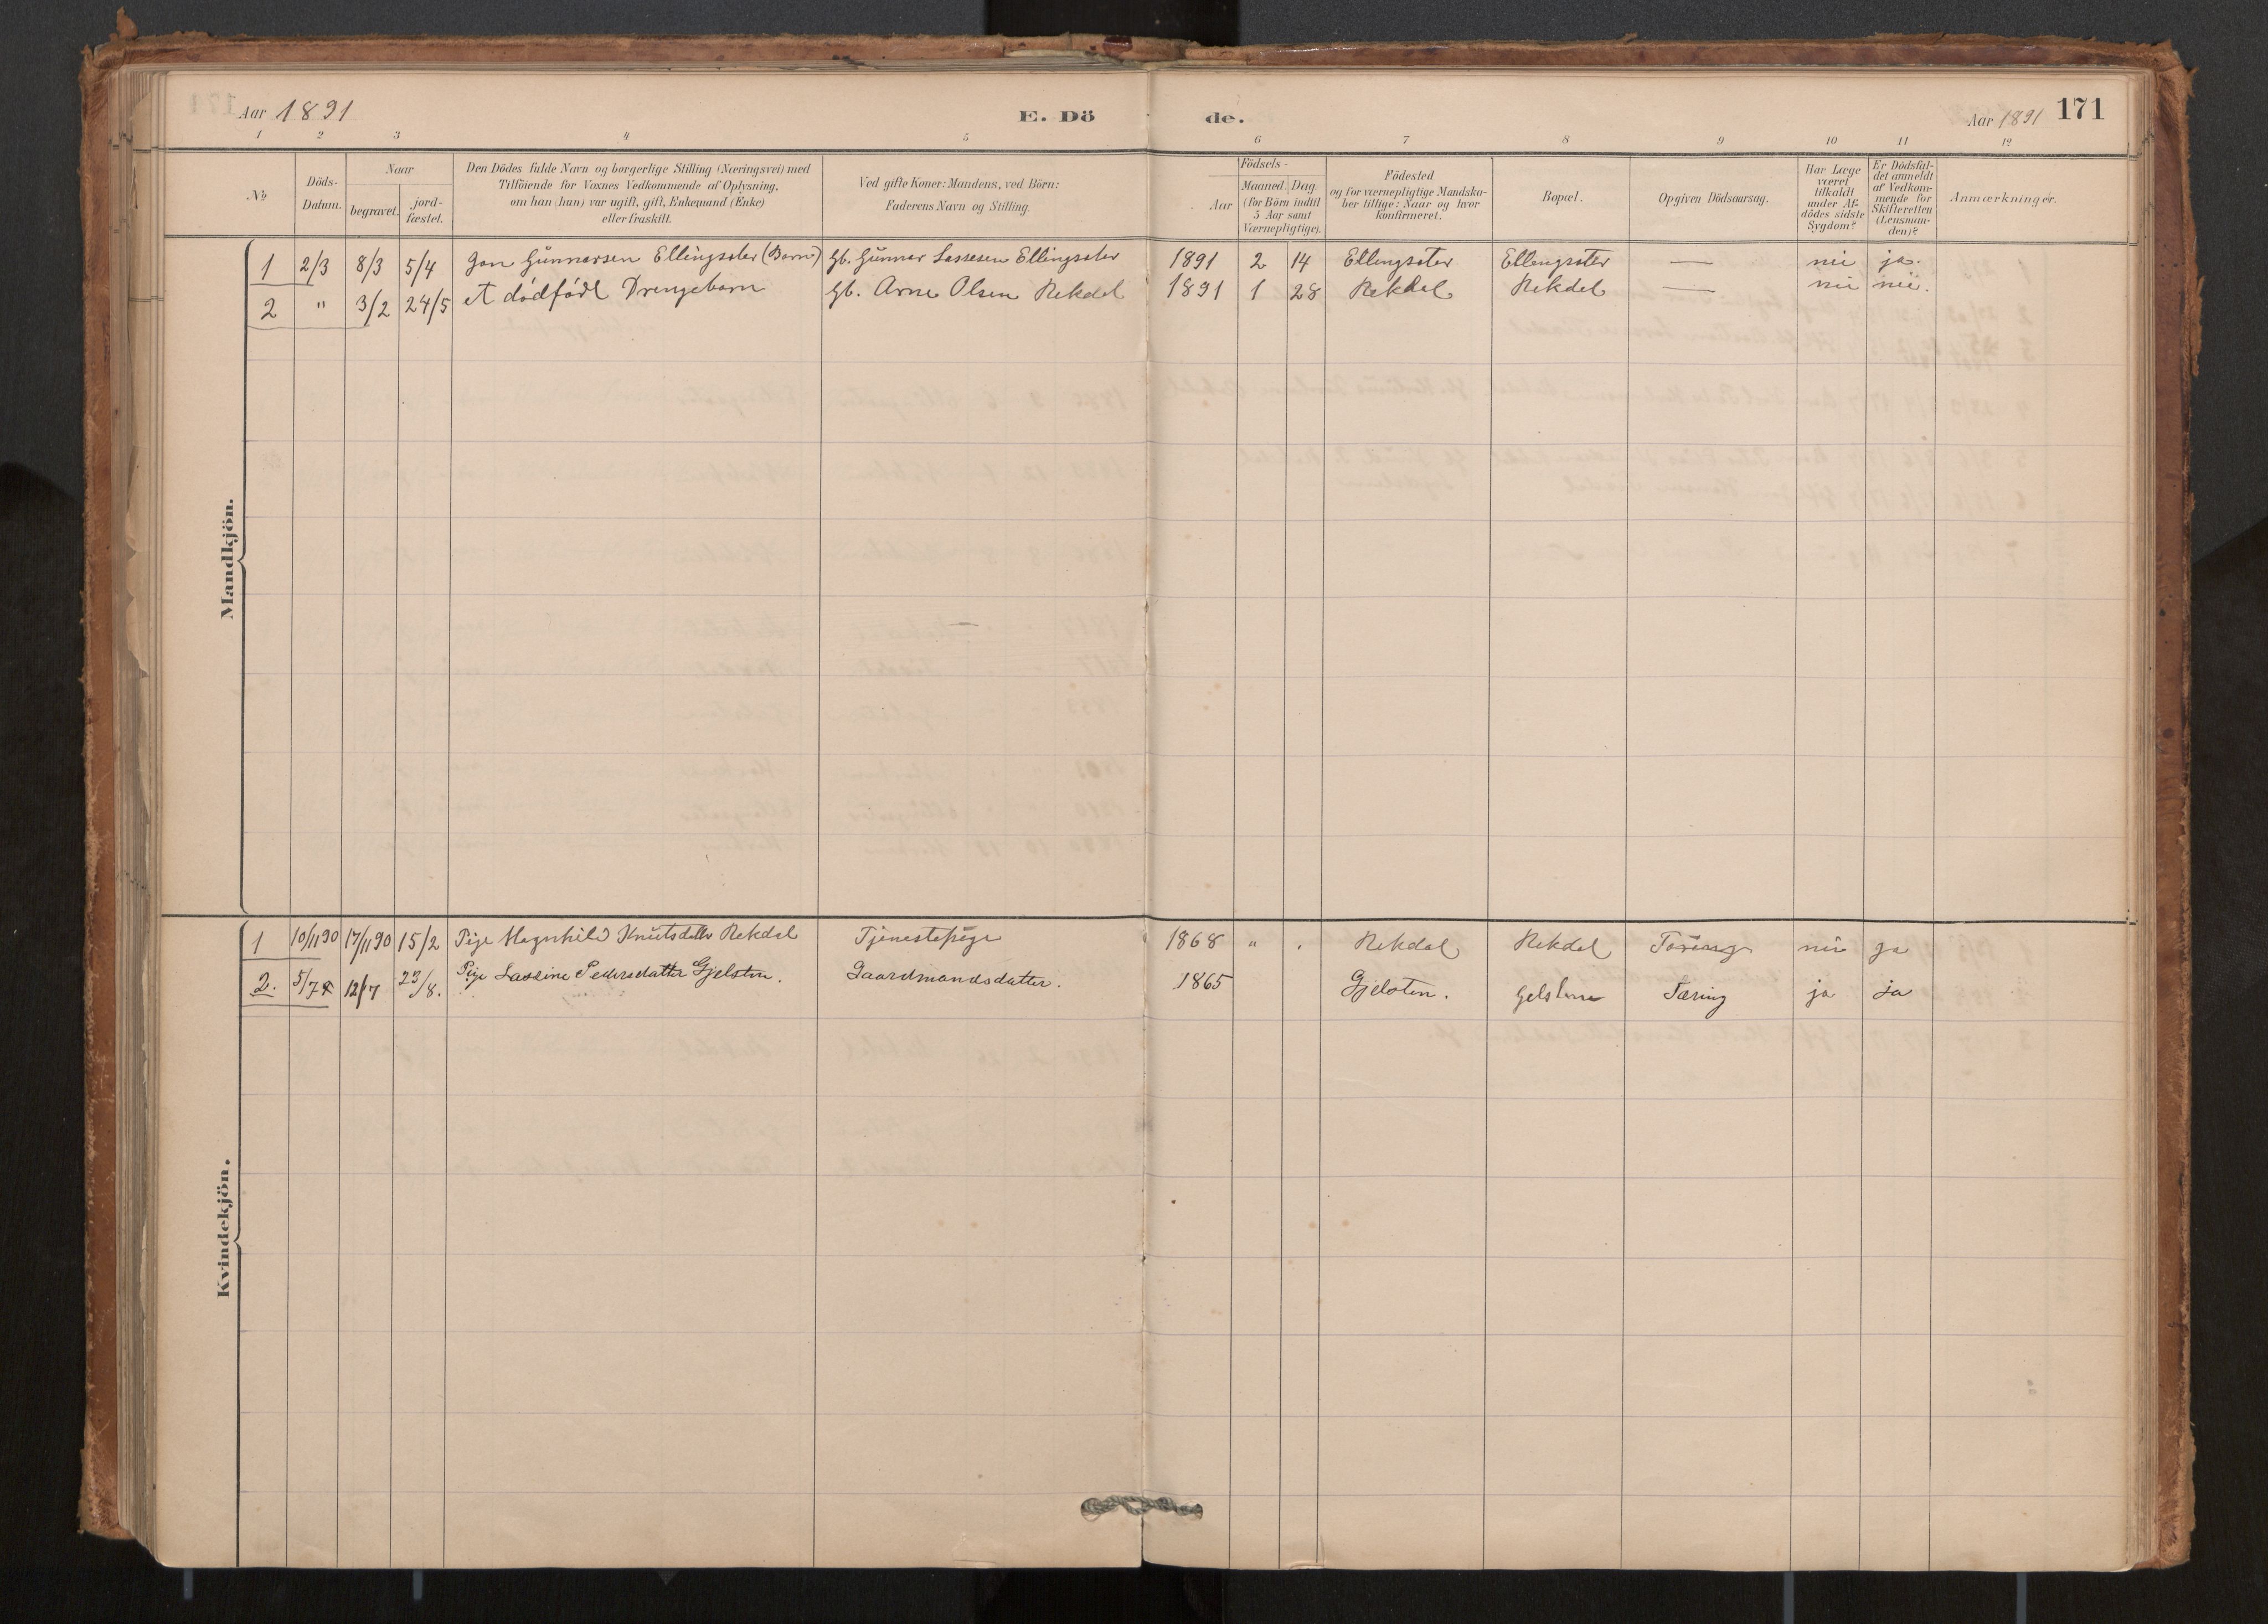 Aar 1891
E. Dö
de.
Aar 1891 171
1 2 3 4 5 6 7 8 9 10 11 12
No
Döds-
Datum.
Naar
begravet.
jord-
fæstet.
Den Dödes fulde Navn og borgerlige Stilling (Næringsvei) med
Tilföiende for Voxnes Vedkommende af Oplysning,
om han (hun) var ugift, gift, Enkemand (Enke)
eller fraskilt.
Ved gifte Koner: Mandens, ved Börn:
Faderens Navn og Stilling.
Födsels-
Aar
Maaned. Dag.
(for Börn indtil
5 Aar samt
Værnepligtige).
Födested
og for værnepligtige Mandska-
ber tillige: Naar og hvor
konfirmeret.
Bopæl.
Opgiven Dödsaarsag.
Har Læge
været
tilkaldt
under Af-
dödes sidste
Sygdom?
Er Dödsfal-
det anmeldt
af Vedkom-
mende for
Skifteretten
(Lensman-
den)?
Anmærkninger.
Mandkjön.
1 2/3 8/3 5/4 Jon Gunnarsen Ellingsæter (Barn) Gb. Gunnar Lassesen Ellingsæter 1891 2 14 Ellingsæter Ellingsæter — nei ja.
2 " 3/2 24/5 et dödfödt Drengebarn Gb. Arne Olsen Rekdal 1891 1 28 Rekdal Rekdal — nei nei.
Kvindekjön.
1 10/11 90 17/11 90 15/2 Pige Magnhild Knutsdatter Rekdal Tjenestepige 1868 " . Rekdal Rekdal Tæring nei ja
2. 5/7 12/7 23/8. Pige Lassine Pedersdatter Gjelsten. Gaardmandsdatter. 1865 Gjelsten. Gelsten Tæring ja ja